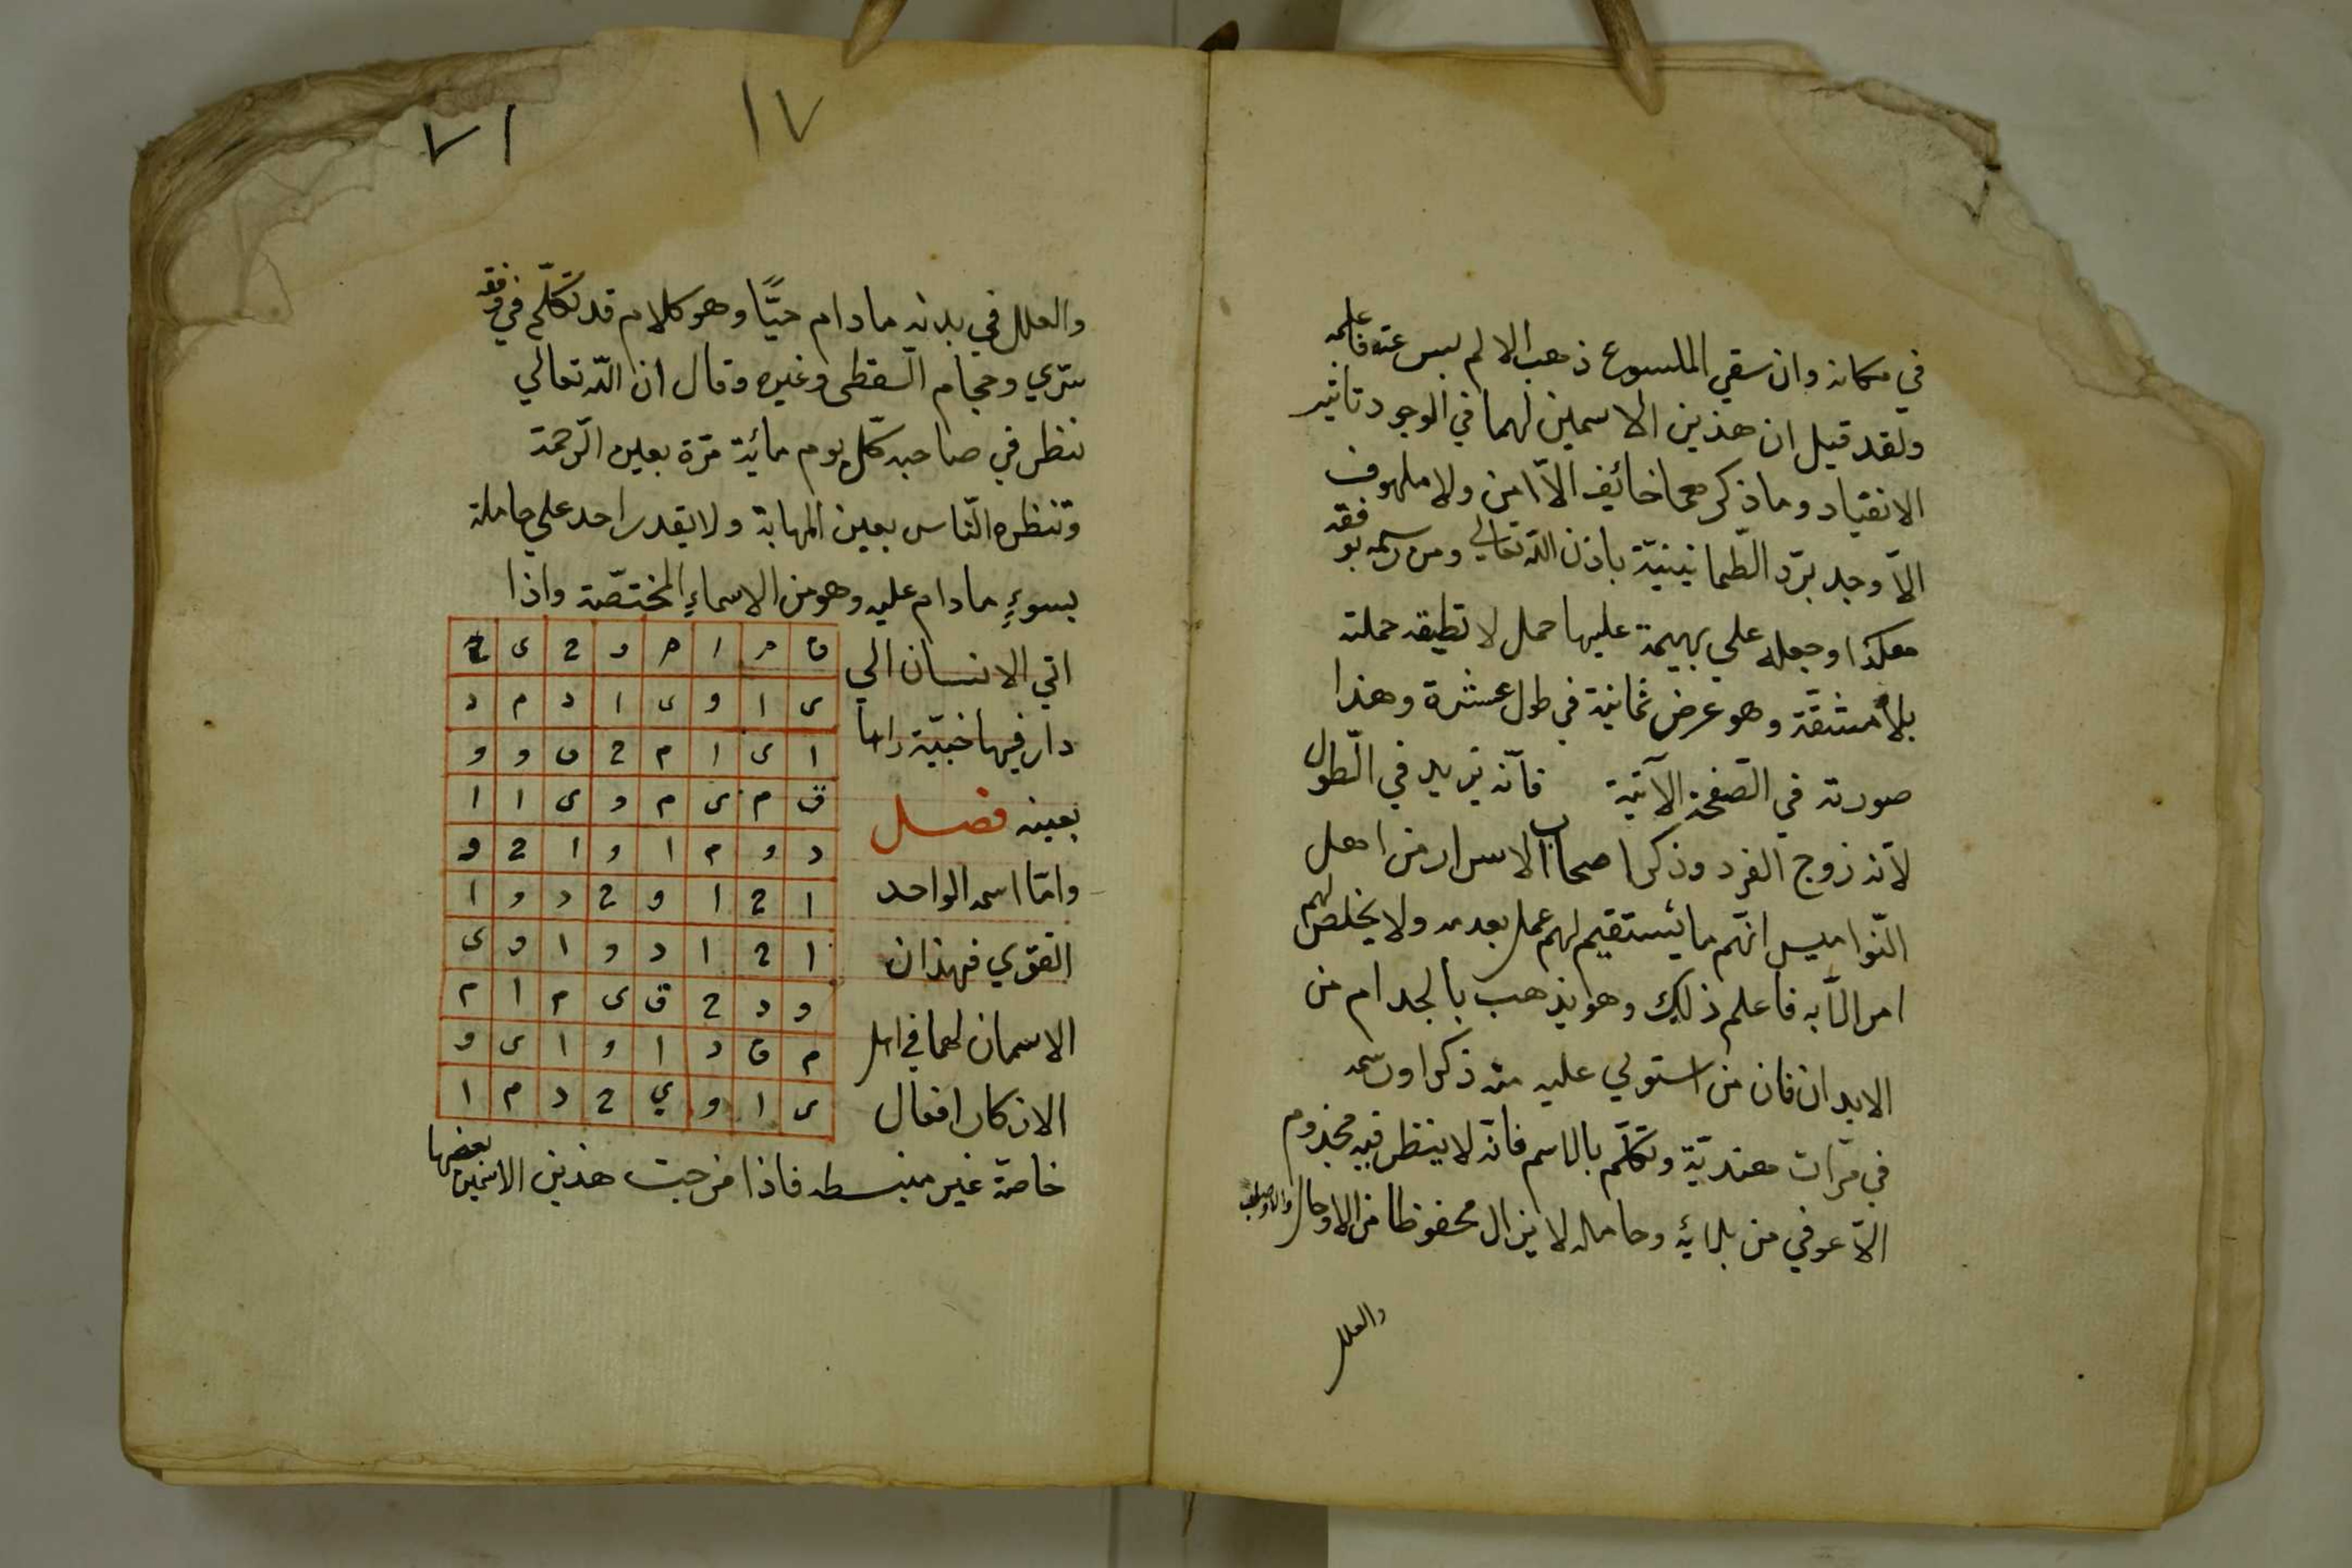 في مكانه وان سقي الملسوع ذهب الالم لبس عنه فاعلمه
ولقد قيل ان هذين الاسمين لهما في الوجود تاثير
الانقياد وما ذكرهما خائف الاّ امن ولا ملهوف
الاّ وجد برّد الطّمانينيّة باذن اللّه تعالي ومن رسمه بوفقه
هكذا وجعله علي بهيمة عليها حمل لا تطيقه حملته
بلا مشقّة وهو عرض ثمانية في طول عشرة وهذا
صورته في الصّفحة الآتية فانّه نزيد في الطّول
لانّه زوج الفرد وذكر اصحاب الاسرار من اهل
النّواميس انّهم ما يستقيم لهم عمل بعدمه ولا يخلص لهم
امر الاّ به فاعلم ذلك وهو يذهب بالجدام من
الابدان فان من استولي عليه منه ذكرا ورسمه
في مرّات هنديّة وتكلّم بالاسم فانّه لا ينظر فيه مجذوم
الاّ عوفي من بلائه وحامله لا يزال محفوظا من الاوجال
والعلل
١٧
٧١
والعلل في بدنه مادام حيّاً وهو كلام قد تكلّم في وفقه
سري وحجام السّقطى وغيره وقال ان اللّه تعالي
ننظر في صاحبه كلّ يوم مائية مّرة بعين الرّحمة
وتنظره النّاس بعين المهابة ولا يقدر احد علي حامله
بسوءٍ مادام عليه وهو من الاسماءِ المختصّة واذا
اتي الانسان الي
دار فيها خبيّة راها
بعينه فصل
وامّا اسمه الواحد
القوي فهذان
الاسمان لهما في اهل
الاذكار افعال
ق م ا م و 2 ى 2
ى ا و ى ا د م د
ا ى ا م 2 ق و و
ق م ى م و ى ا ا
د و م ا و ا 2 و
ا 2 ا و 2 د و ا
ا 2 ا د و ا و ى
و د 2 ق ى م ا م
م ق د ا و ا ى و
ى ا و ي 2 د م ا
خاصة غير منبسطه فاذا مزجت هذين الاسمين بعضها